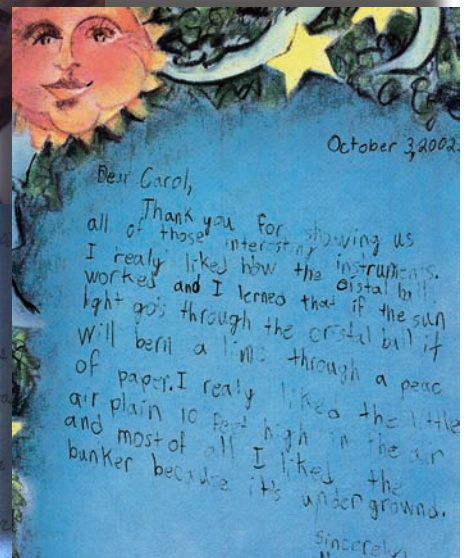 October 3, 2002.
Dear Carol,
Thank you for showing us
all of those interesting instruments.
I realy liked how the cristal ball
workes and I lerned that if the sun
light go's through the cristal ball it
will bern a line through a peac
of paper. I realy liked the little
air plain 10 feet high in the air
and most of all I liked the
bunker because it's underground.
Sincerely,